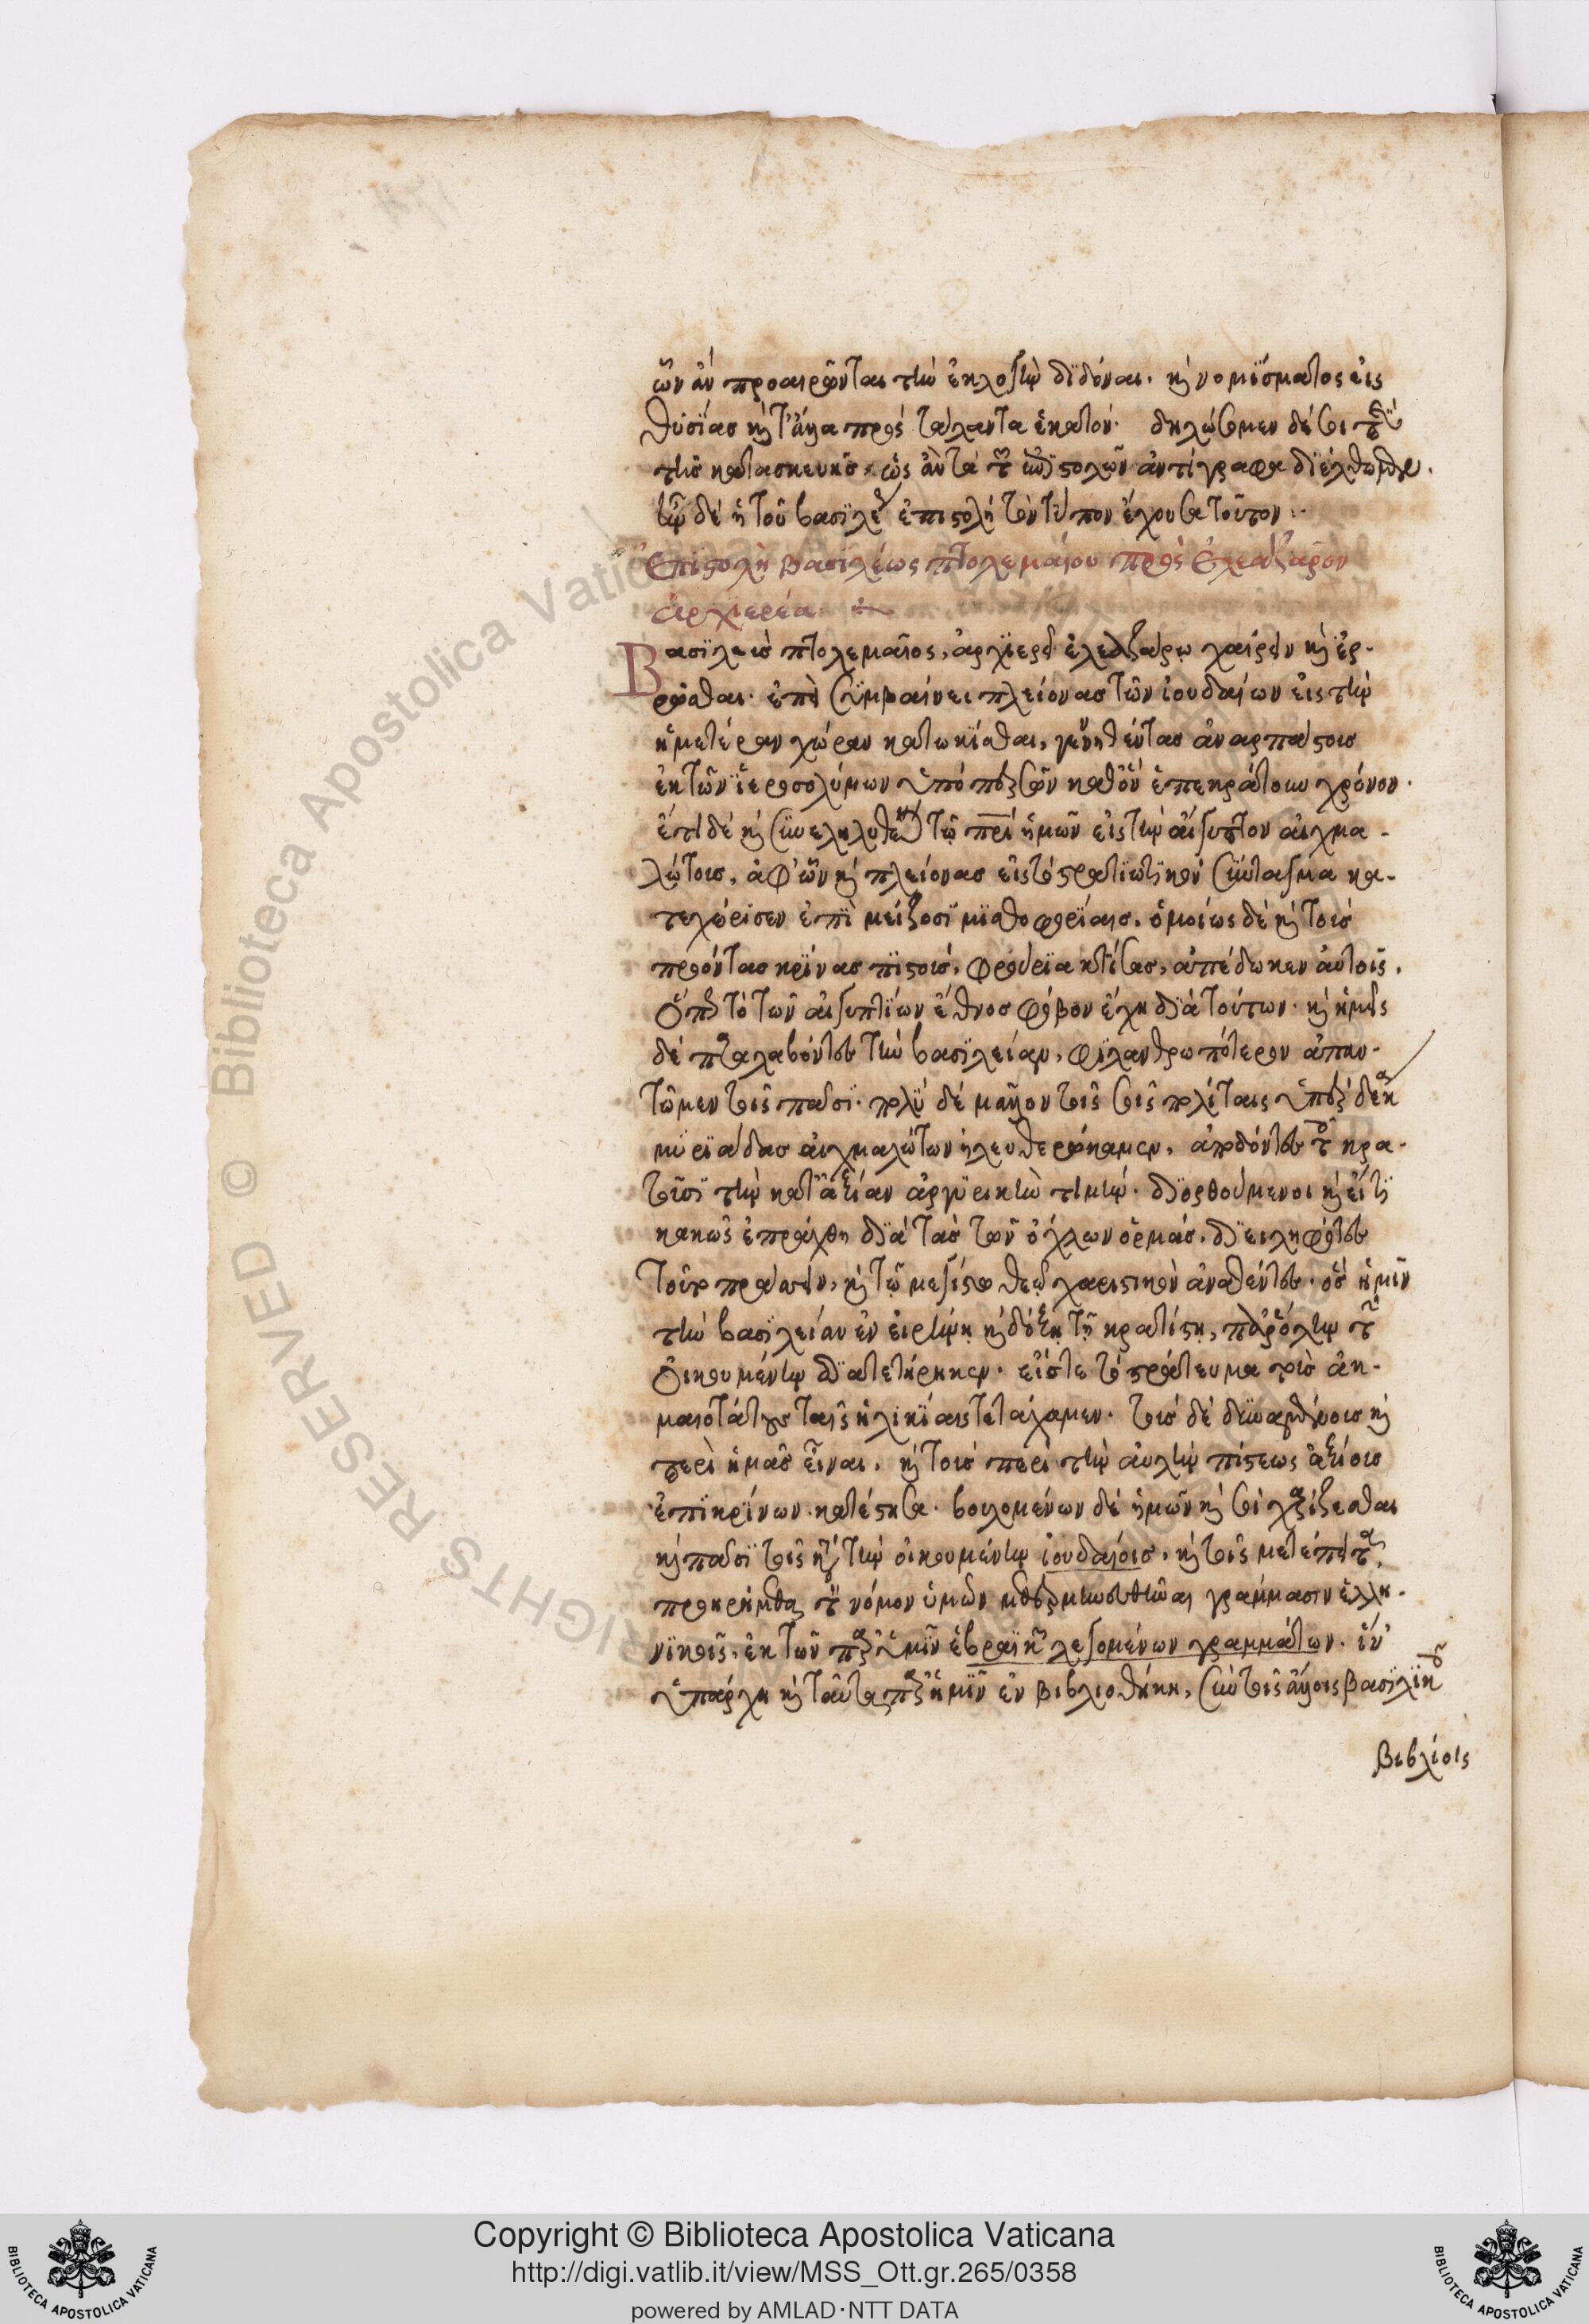 ὧν ἂν προαιρῶνται τὴν ἐκλογὴν διδόναι. καὶ νομίσματος εἰς
θυσίας καὶ τἄλλα πρὸς τάλαντα ἑκατόν. δηλώσομεν δέ σοι περὶ
τῆς κατασκευῆς, ὡς ἂν τὰ τῶν ἐπιστολῶν ἀντίγραφα διέλθωμεν.
ἦν δὲ ἡ τοῦ βασιλέως ἐπιστολὴ τὸν τύπον ἔχουσα τοῦτον :-
Ἐπιστολὴ βασιλέως πτολεμαίου πρὸς ἐλεάζαρον
ἀρχιερέα
Βασιλεὺς πτολεμαῖος, ἀρχιερεῖ ἐλεαζάρῳ χαίρειν καὶ ἐρ-
ρῶσθαι. ἐπεὶ συμβαίνει πλείονας τῶν ἰουδαίων εἰς τὴν
ἡμετέραν χώραν κατωκίσθαι, γενηθέντας ἀναρπάστοις
ἐκ τῶν ἱεροσολύμων ὑπὸ περσῶν καθ' ὃν ἐπεκράτουν χρόνον.
ἔτι δὲ καὶ συνεληλυθέναι τῷ πρὶ ἡμῶν εἰς τὴν αἴγυπτον αἰχμα-
λώτοις, ἀφ' ὧν καὶ πλείονας εἰς τὸ στρατιωτικὸν σύνταγμα κα-
τεχώρισεν ἐπὶ μείζοσι μισθοφορίαις. ὁμοίως δὲ καὶ τοὺς
προόντας κρίνας πιστοὺς, φρούρια κτίσας, ἀπέδωκεν αὐτοῖς.
ὅπως τὸ τῶν αἰγυπτίων ἔθνος φόβον ἔχῃ διὰ τούτων. καὶ ἡμεῖς
δὲ παραλαβόντες τὴν βασιλείαν, φιλανθρωπότερον ἀπαν-
τῶμεν τοῖς πᾶσι. πολὺ δὲ μᾶλλον τοῖς σοῖς πολίταις ὑπὲρ δέκα
μυριάδας αἰχμαλώτων ἠλευθερώκαμεν, ἀποδόντες τοῖς κρα-
τοῦσι τὴν κατ' ἀξίαν ἀργυρικὴν τιμὴν. διορθούμενοι καὶ εἴ τι
κακῶς ἐπράχθη διὰ τὰς τῶν ὄχλων ὁρμάς. διειληφότες
τοῦτο πράσσειν, καὶ τῷ μεγίστῳ θεῷ χαριστικὸν ἀναθέντες. ὃς ἡμῖν
τὴν βασιλείαν ἐν εἰρήνῃ καὶ δόξῃ τῇ κρατίστῃ, παρ' ὅλην τὴν
οἰκουμένην διατετήρηκεν. εἴς τε τὸ στράτευμα τοὺς ἀκ-
μαιοτάτους ταῖς ἡλικίαις τετάχαμεν. τοὺς δὲ δυναμένους καὶ
περὶ ἡμᾶς εἶναι, καὶ τοὺς περὶ τὴν αὐλὴν πίστεως ἀξίους
ἐπικρίνων. κατέστησα. βουλομένων δὲ ἡμῶν καὶ σοὶ χαρίζεσθαι
καὶ πᾶσι τοῖς κατὰ τὴν οἰκουμένην ἰουδαίοις, καὶ τοῖς μετέπειτα,
προῃρήμεθα τὸν νόμον ὑμῶν μεθερμηνευθῆναι γράμμασιν ἑλλη-
νικοῖς, ἐκ τῶν παρ' ὑμῖν ἑβραϊκῶν λεγομένων γραμμάτων. ἵν'
ὑπάρχῃ καὶ ταῦτα παρ' ἡμῖν ἐν βιβλιοθήκῃ, σὺν τοῖς ἄλλοις βασιλικοῖς
βιβλίοις
Copyright © Biblioteca Apostolica Vaticana
http://digi.vatlib.it/view/MSS_Ott.gr.265/0358
powered by AMLAD·NTT DATA